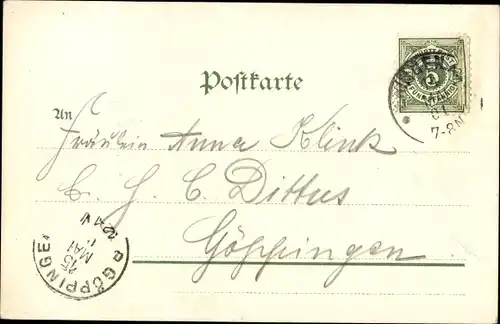 Postkarte
An
Fräulein Anna Klink
C. H. C. Dittus
Göppingen
FÜNF PFENNIG
5
7-8N
GÖPPINGEN
15
MAI